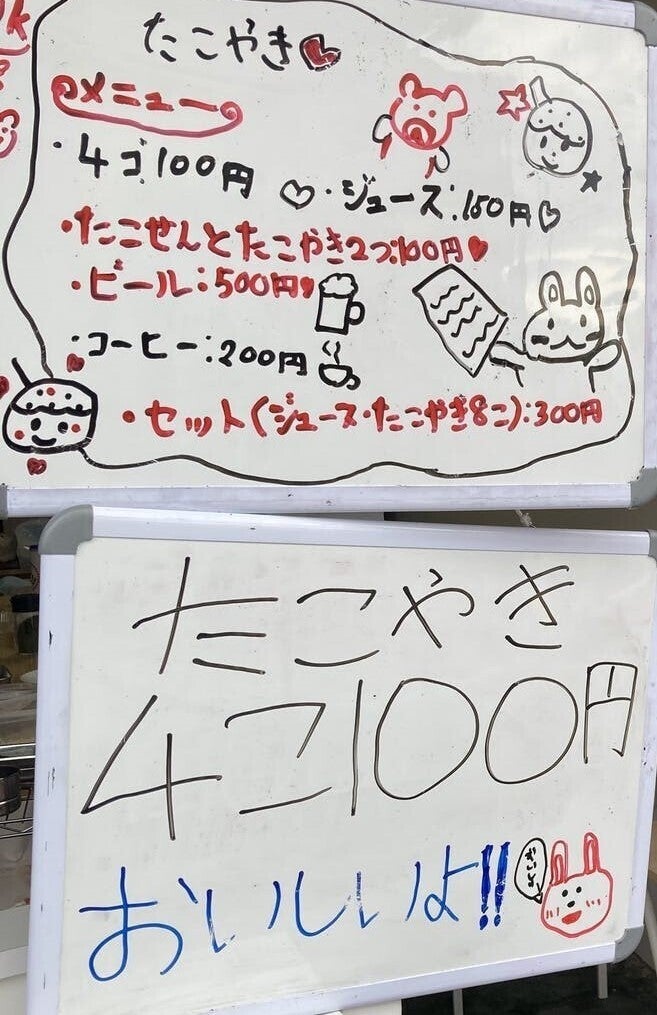 たこやき
メニュー
・4コ100円
・ジュース:150円
・たこせんとたこやき2つ100円
・ビール:500円
・コーヒー:200円
・セット(ジュース・たこやき8こ):300円
たこやき
4コ100円
おいしいよ!!